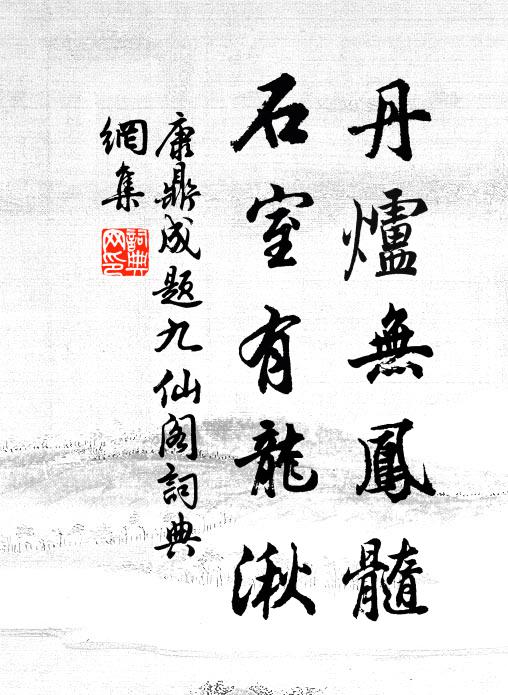 丹爐無鳳髓
石室有龍湫
康鼎成題九仙阁詞典
網集
詞典
网印